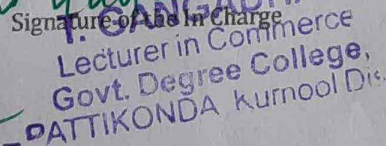 Signature of the In Charge
Lecturer in Commerce
Govt. Degree College,
PATTIKONDA Kurnool